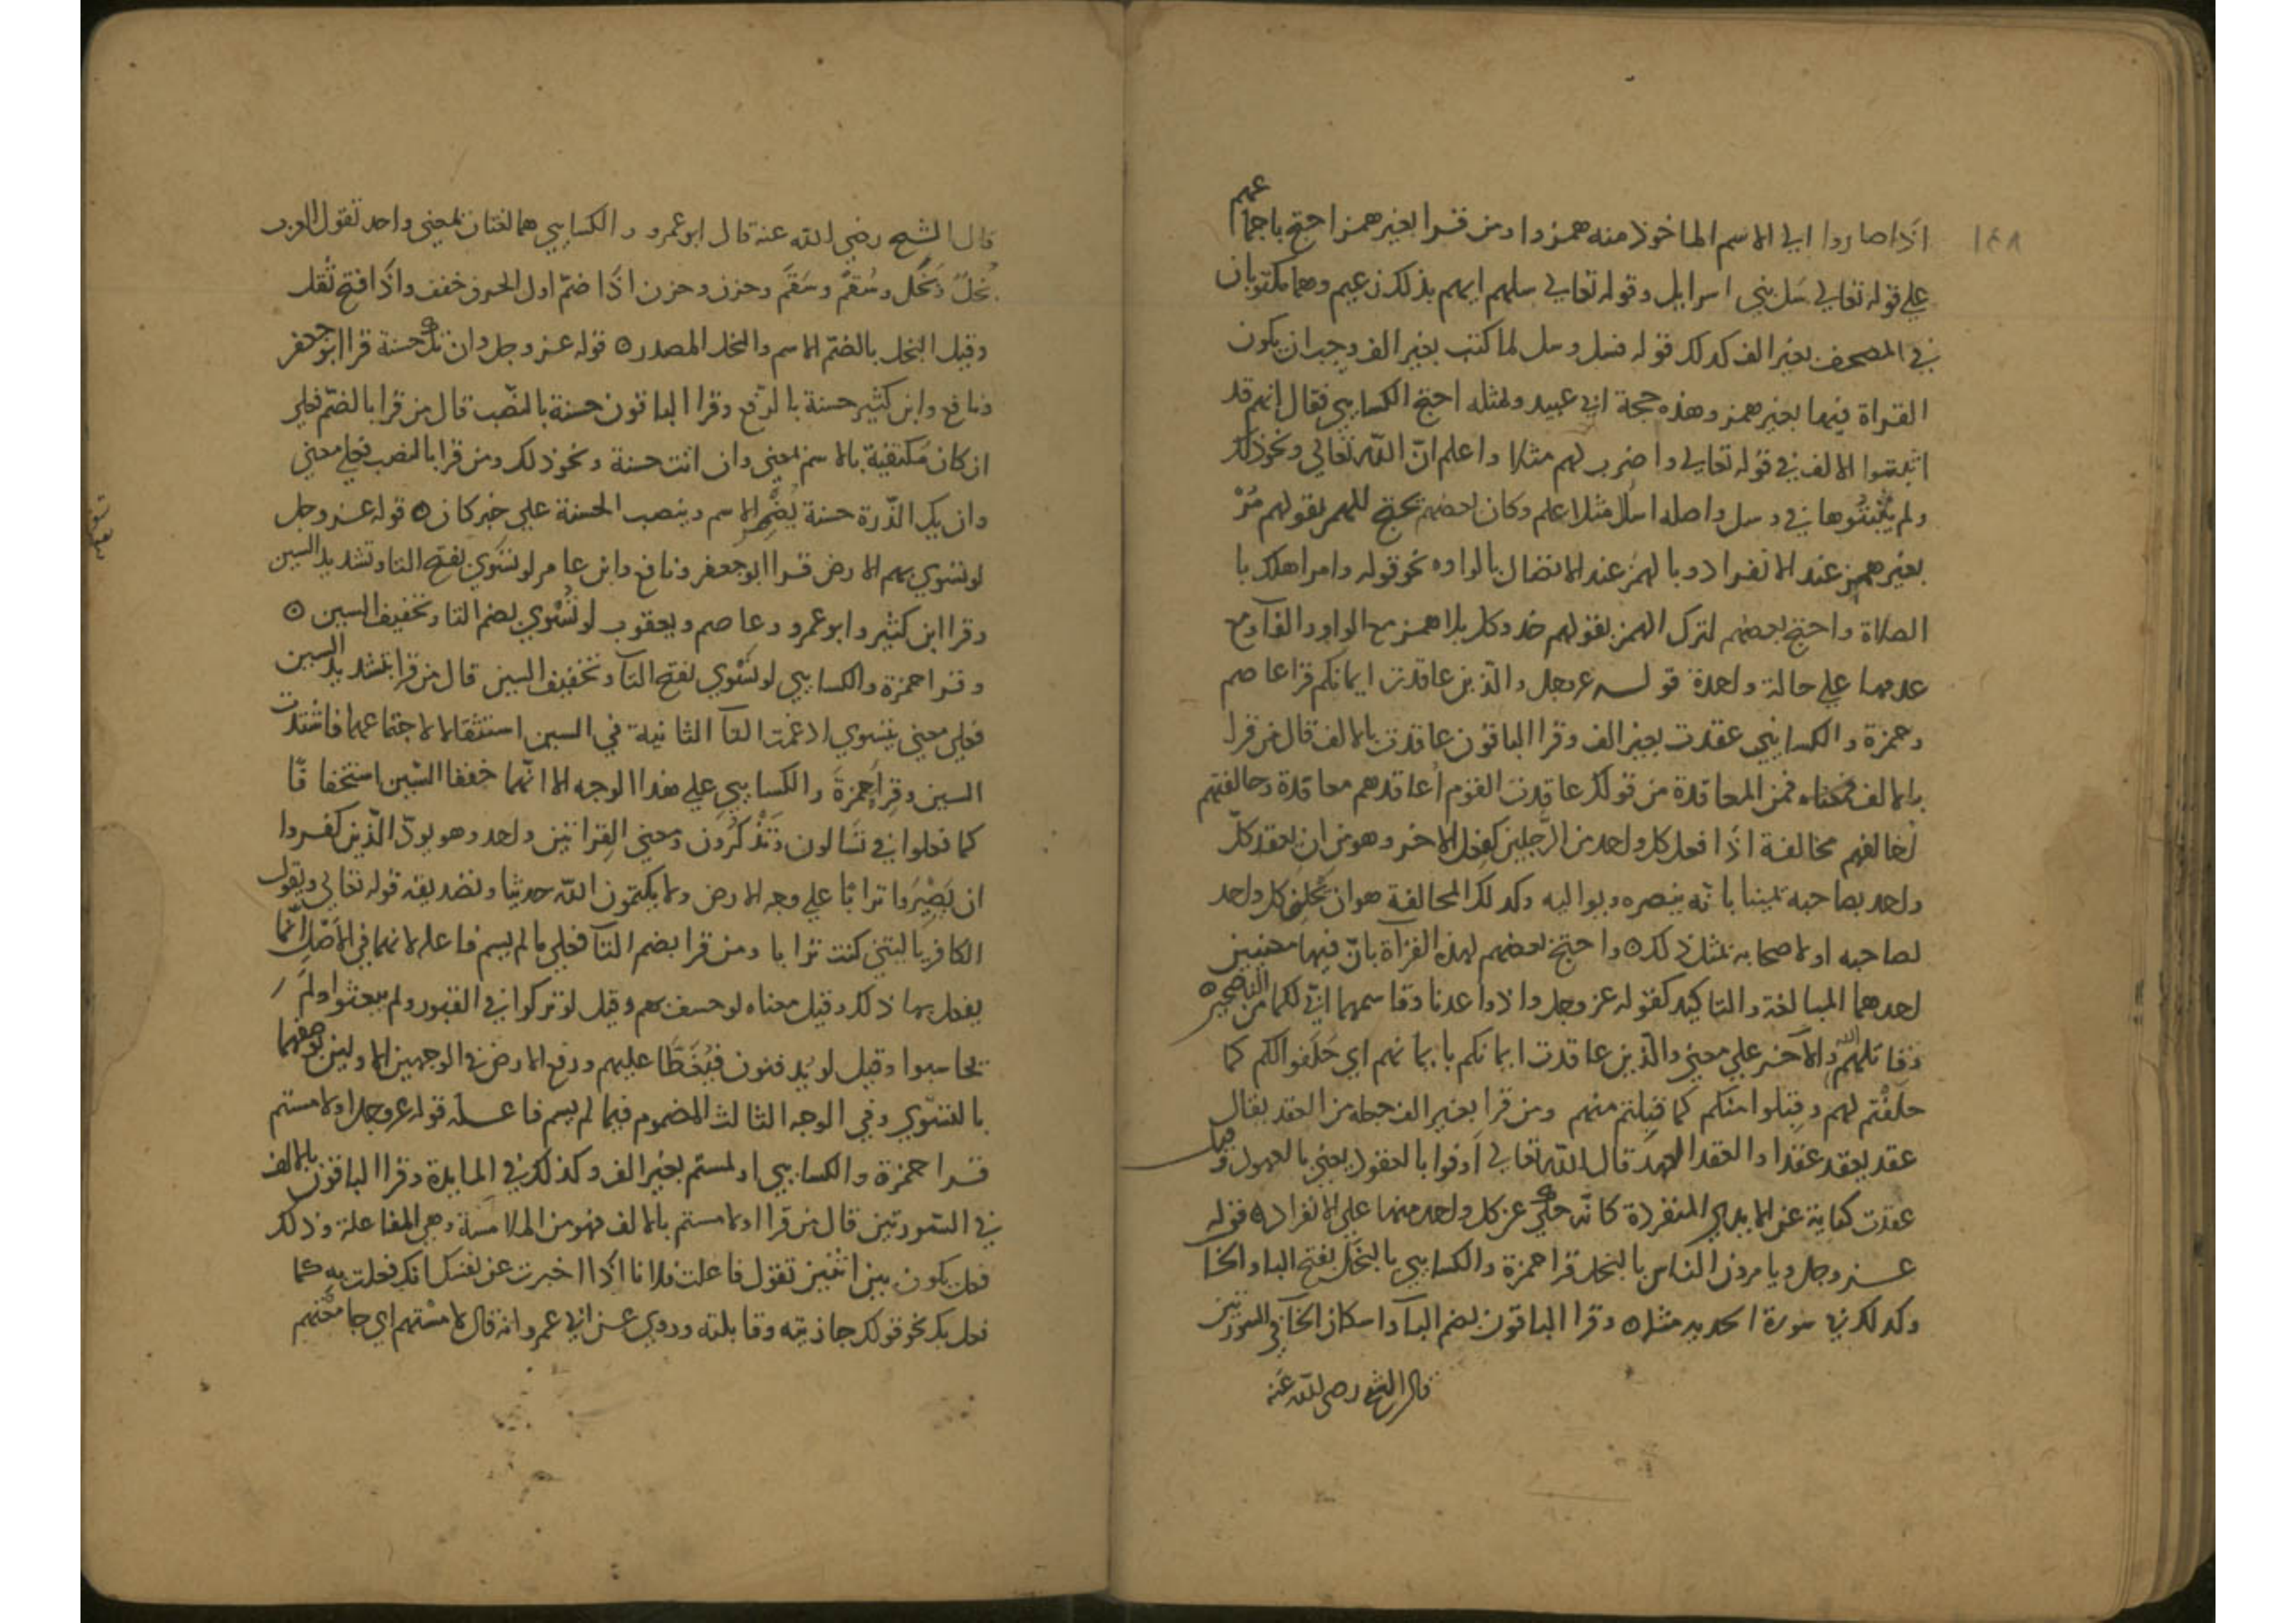 ١٤٨
اذا صاروا الي الاسم الماخوذ منه همزوا ومن قرا بغير همز احتج باجماعهم
علي قوله تعالي سل بني اسرايل وقوله تعالي سلهم ايهم بذلك زعيم وهما مكتوبان
في المصحف بغير الف كذلك قوله فسل وسل لما كتب بغير الف وجب ان يكون
القراة فيهما بغير همز وهذه حجة ابي عبيد ولمثله احتج الكسايي فقال انهم قد
اثبتوا الالف في قوله تعالي واضرب لهم مثلا واعلم انّ الله تعالي ونحو ذلك
ولم يثبتوها في وسل واصله اسل مثل اعلم وكان بعضهم يحتج للهمز بقولهم مُرْ
بغير همز عند الانفراد وبالهمز عند الاتصال بالواو ه نحو قوله وامر اهلك با
الصلاة واحتج بعضهم لترك الهمز بقولهم خذ وكل بلا همز مع الواو والفآ ومع
عدمهما علي حالة واحدة قوله عز وجل والذين عاقدت ايمانكم قرا عاصم
وحمزة والكسايي عقدت بغير الف وقرا الباقون عاقدت بالالف قال من قرا
بالالف فمعناه فمن المعاقدة من قولك عاقدت القوم اُعاقدهم معاقدة وحالفتهم
اُحالفهم محالفة اذا فعل كل واحد من الرّجلين كفعل الاخر وهو من ان يعقد كلّ
واحد بصاحبه يمينا بانّه ينصره ويواليه وكذلك المحالفة هو ان يحلف كل واحد
لصاحبه او لاصحابه بمثل ذلك ه واحتج بعضهم لهذه القراة بانّ فيها معنيين
احدهما المبالغة والتاكيد كقوله عز وجل واذ واعدنا وقاسمهما اني لكما من الناصحين ه
وقاتلهم الله والآخر علي معني والذين عاقدت ايمانكم بايمانهم اي حَلَفوا لكم كما
حلَفْتم لهم وقبلوا منكم كما قبلتم منهم ومن قرا بغير الف جعله من العقد يقال
عقد يعقد عقدا والعقد العهد قال الله تعالي اَوفوا بالعقود يعني بالعهود وقيل
عقدت كناية عن الايدي المنفردة كانّه حكي عن كل واحد منهما علي الانفراد ه قوله
عز وجل ويامرون الناس بالبخل قرا حمزة والكسايي بالبَخَل بفتح البا والخا
وكذلك في سورة الحديد مثله ه وقرا الباقون بضم البآ واسكان الخآ في السورتين
قال الشيخ رضي الله عنه
قال الشيخ رضي الله عنه قال ابو عمرو والكسايي هما لغتان بمعني واحد تقول العرب
بُخلٌ وبَخَل وسُقمٌ وسَقَمٌ وحزن وحزن اذا ضمّ اول الحرف خفف واذا فتح ثُقل
وقيل البخل بالضّم الاسم والبخل المصدر ه قوله عز وجل وان تك حسنة قرا ابو جعفر
ونافع وابن كثير حسنة بالرّفع وقرا الباقون حسنة بالنّصب قال من قرا بالضمّ فعلي
ان كان مكتفية بالاسم بمعني وان اتت حسنة ونحو ذلك ومن قرا بالنصب فعلي معني
وان يك الذّرة حسنة يُضْمِر الاسم وينصب الحسنة علي خبر كان ه قوله عز وجل
لو تسوي بهم الارض قرا ابو جعفر ونافع وابن عامر لو تسّوي بفتح التا وتشديد السين
وقرا ابن كثير وابو عمرو وعاصم ويعقوب لو تُسْوي بضم التا وتخفيف السين ه
وقرا حمزة والكسايي لو تَسْوي بفتح التآ وتخفيف السين قال من قرا بتشديد السين
فعلي معني يتسوي ادغمت التآ الثانية في السين استثقالا لاجتماعهما فاشتدت
السين وقراَ حمزةَ والكسايي علي هذا الوجه الا انّهما خففا السّين استخفافًا
كما فعلوا في تسالون وتَذْكُرون ومعني القراتين واحد وهو يودّ الّذين كفروا
ان يَصِيْرَوا ترابًا علي وجه الارض ولا يكتمون الله حديثا وتصديقه قوله تعالي ويقول
الكافر يا ليتني كنت ترابا ومن قرا بضم التآ فعلي ما لم يسم فاعله لانهما في الاَصْل انّما
يفعل بهما ذلك وقيل معناه لو خسف بهم وقيل لو تركوا في القبور ولم يبعثوا ولم
يحاسبوا وقيل لو يُدفنون فيُغَطَّا عليهم ورفع الارض في الوجهين الاولين لوصفهما
بالتسّوي وفي الوجه الثالث المضموم فيما لم يسم فاعله قوله عز وجل او لامستم
قرا حمزة والكسايي او لمستم بغير الف وكذلك في المايدة وقرا الباقون بالالف
في السّورتين قال من قرا او لامستم بالالف فهو من الملامسة وهي المفاعلة وذلك
فعل يكون بين اثنين تقول فاعلت فلانا اذا اخبرت عن نفسك انك فعلت به كما
فعل بك نحو قولك جاذبته وقابلته وروي عن ابي عمرو انه قال لامستم اي جامعتم